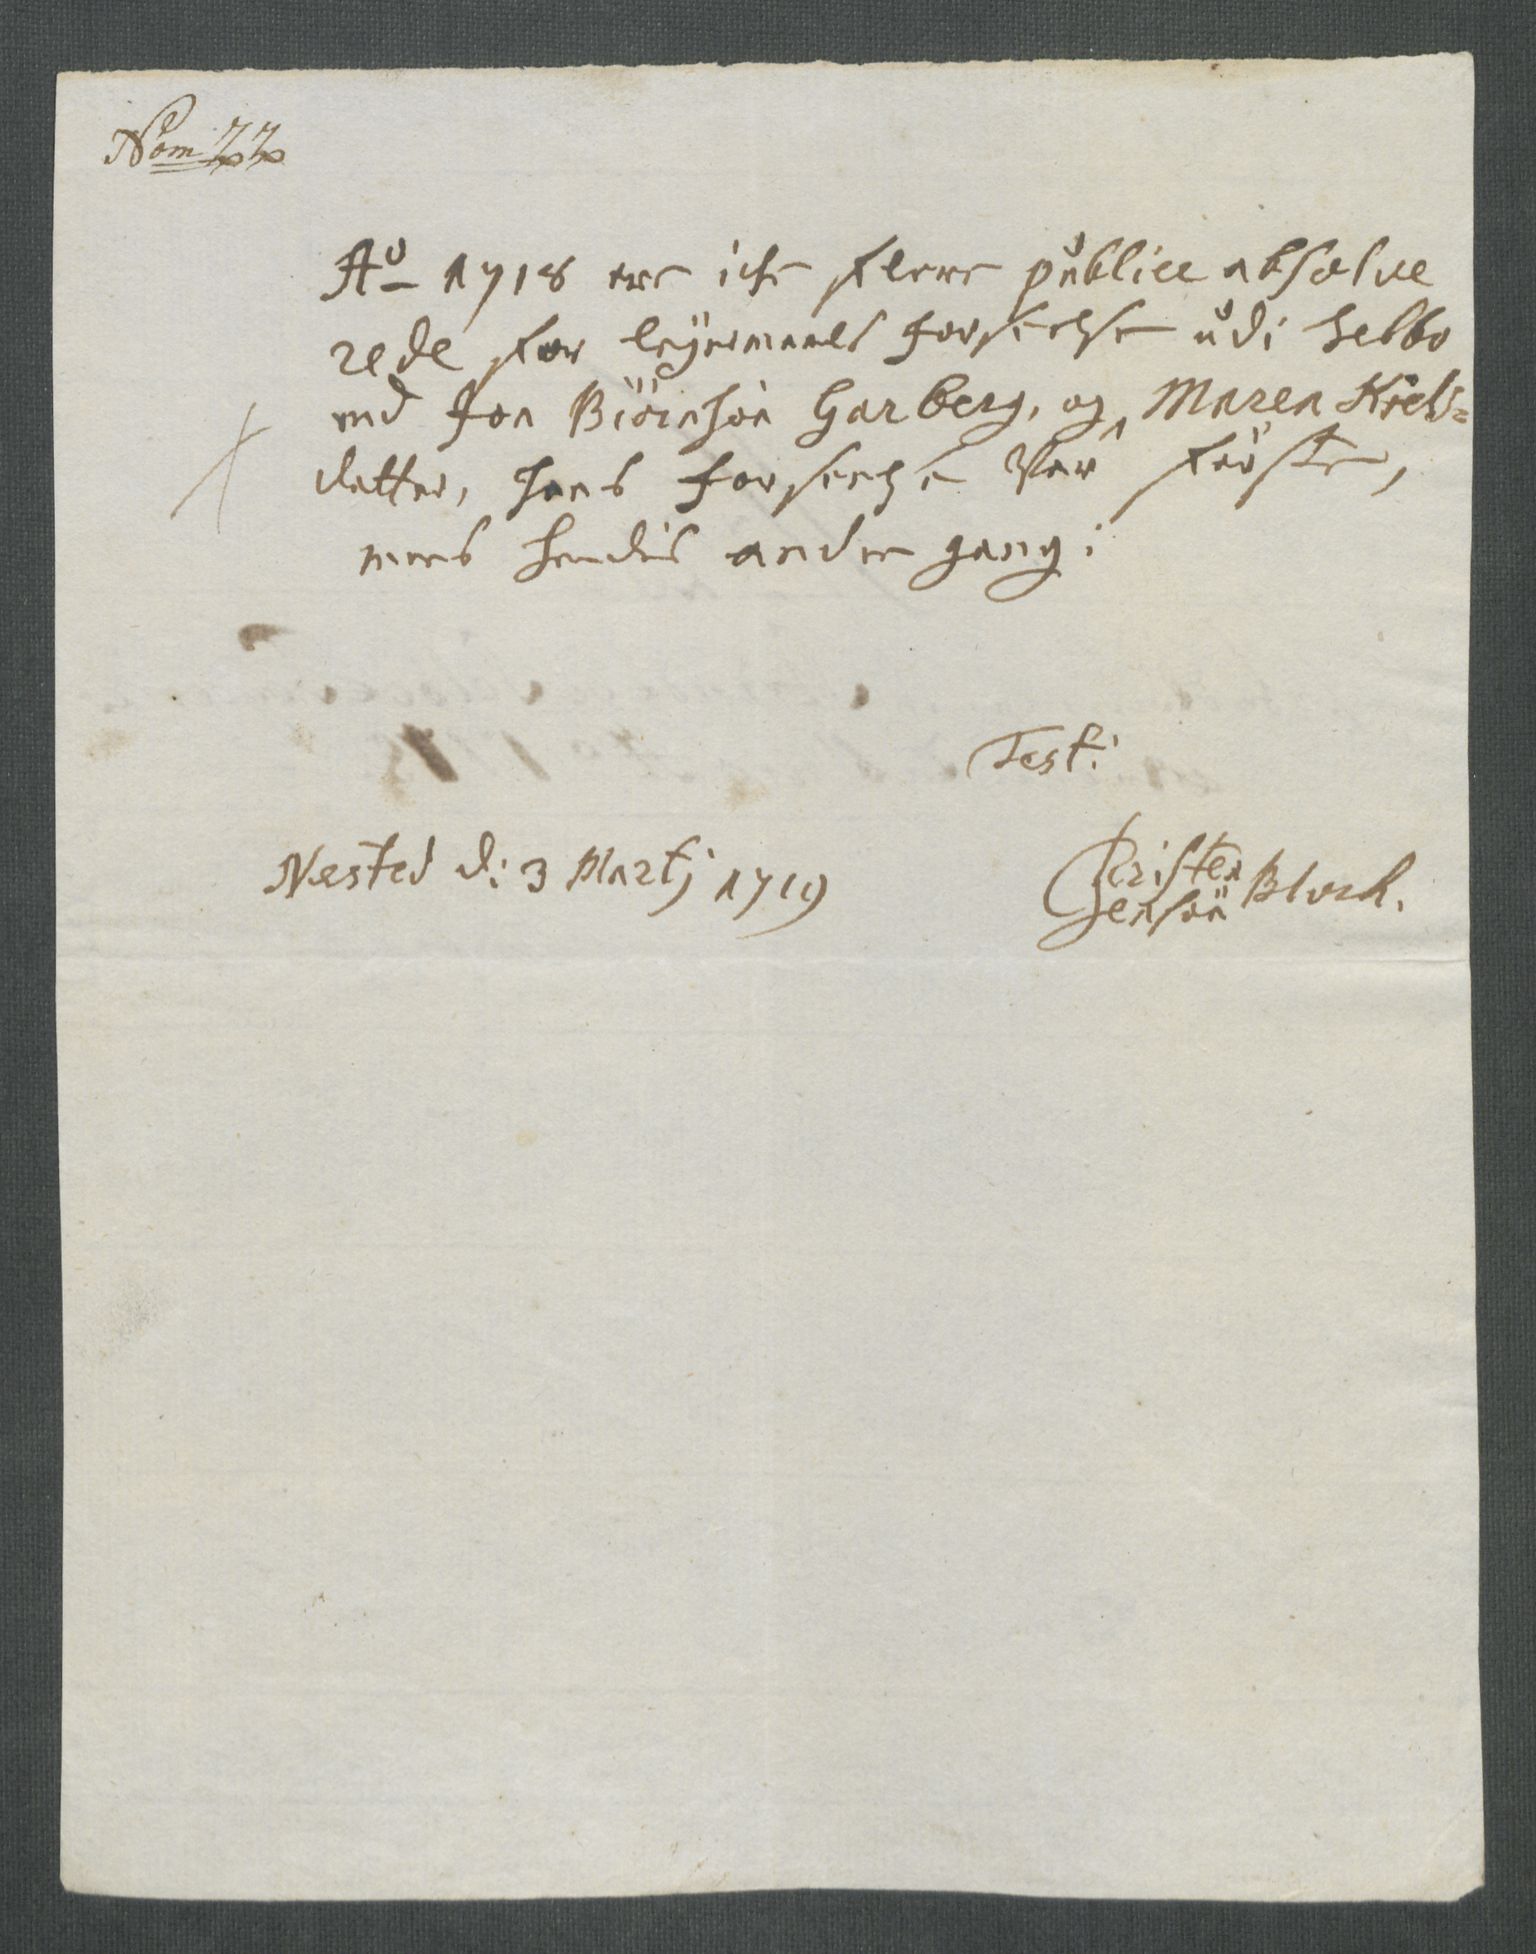 Nom 22
Ao 1718 ere iche flere publice absolve
rede for leÿermaals forseelse udi Selbo
end Jon Biörnsön Garberg, og Maren Kields=
datter, hans forseelse Var förste,
mens hendis anden gang:
Test:
Næsted d: 3 Martj 1719
Christen
Jensön Bloch.